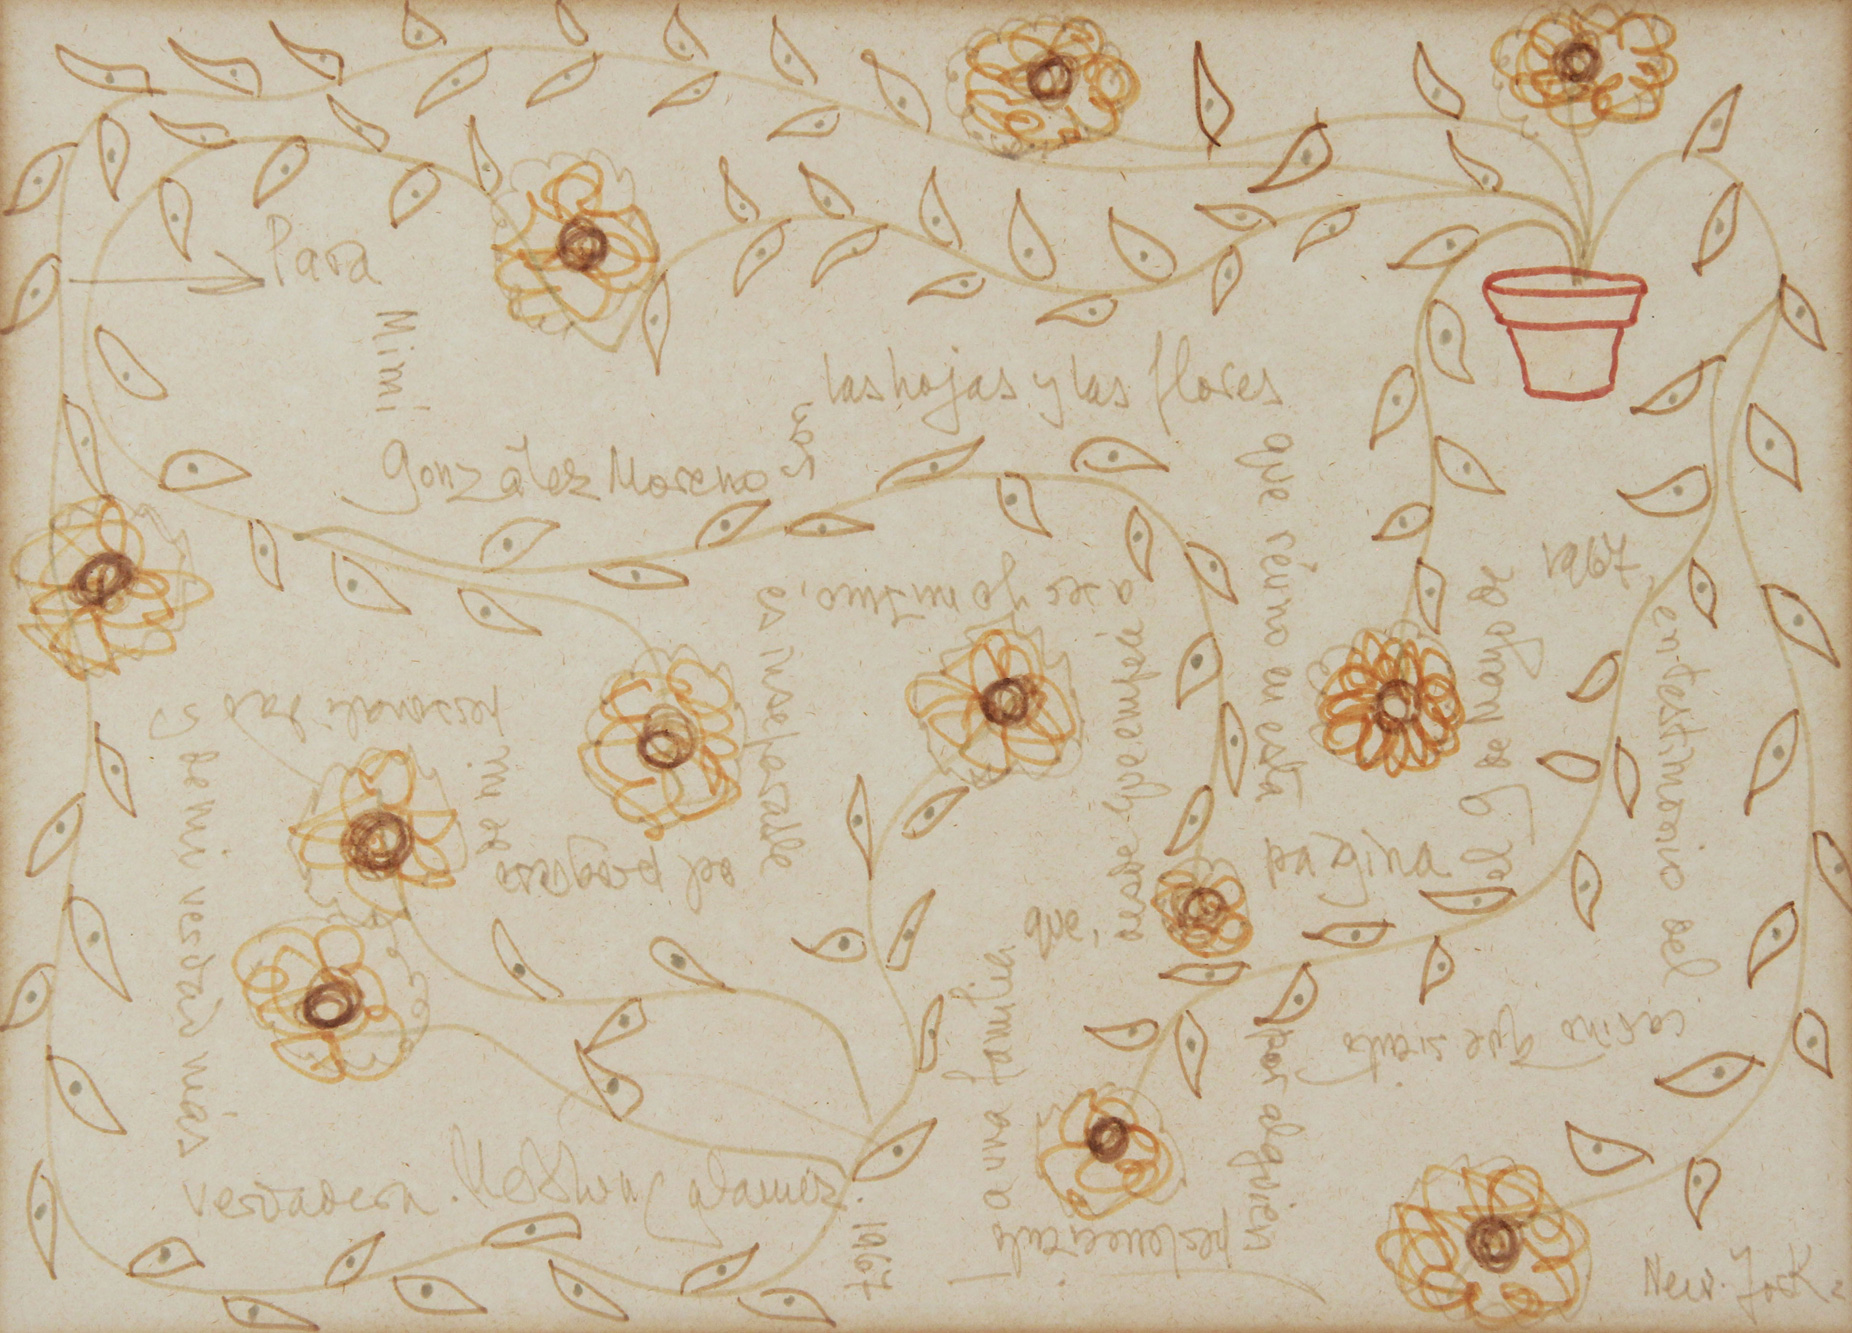 Para
Mimi
González Moreno
van
las hojas y las flores
que reúno en esta
página
de
10 de mayo de
1967,
en testimonio del
cariño que siento
por alguien
perteneciente
a una familia
que,
desde que empecé
a ser yo mismo,
es inseparable
del progreso
de mi
personalidad
y de mi verdad más
verdadera.
1967
New York